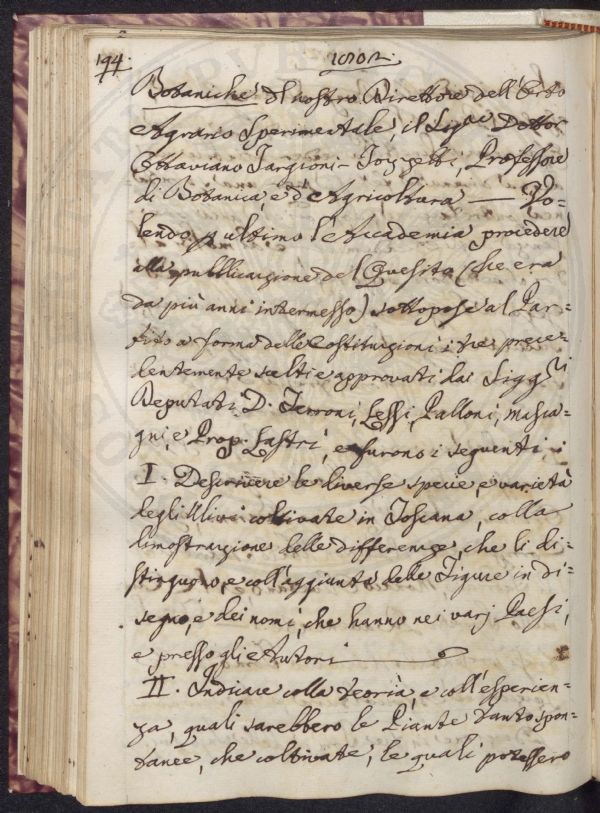 194.
1802.
Botaniche del nostro Direttore dell'Orto
Agrario Sperimentale il Sigre Dottor
Ottaviano Targioni-Tozzetti, Professore
di Botanica e d'Agricoltura — Vo=
lendo p ultimo l'Accademia procedere
alla pubblicazione del Quesito (che era
da più anni intermesso) sottopose al Par=
tito a forma delle Costituzioni i tre prece=
dentemente scelti e approvati dai Siggri
Deputati D. Terroni, Lessi, Palloni, Masca=
gni, e Prop. Lastri, e furono i seguenti
I. Descrivere le diverse specie, e varietà
degli Ulivi coltivate in Toscana, colla
dimostrazione delle differenze, che li di=
stinguono, e coll'aggiunta delle Figure in di=
segno, e dei nomi, che hanno nei varj Paesi,
e presso gli Autori
II. Indicare colla teoria, e coll'esperien=
za, quali sarebbero le Piante tanto spon=
tanee, che coltivate, le quali potessero